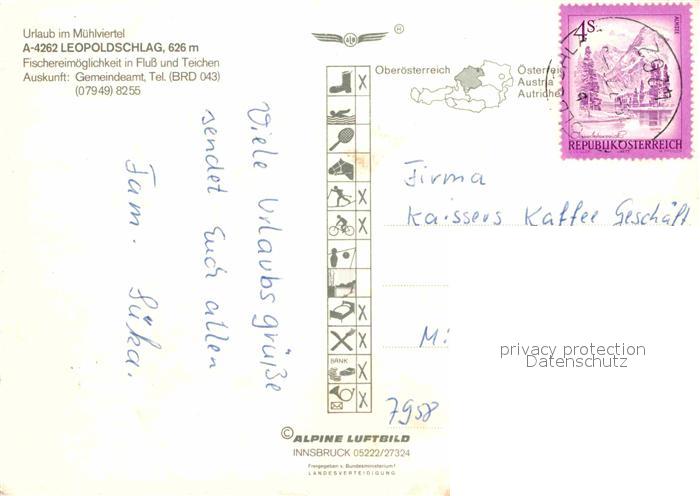 Urlaub im Mühlviertel
A-4262 LEOPOLDSCHLAG, 626 m
Fischereimöglichkeit in Fluß und Teichen
Auskunft: Gemeindeamt, Tel. (BRD 043)
(07949) 8255
Viele Urlaubsgrüße
sendet Euch allen
Fam. Süka.
Oberösterreich
Österrei
Austria
Autriche
4 S
ALMSEE
REPUBLIK ÖSTERREICH
Firma
Kaissers Kaffee Geschäft
M:
privacy protection
Datenschutz
7958
BANK
© ALPINE LUFTBILD
INNSBRUCK 05222/27324
Freigegeben v. Bundesministerium f.
LANDESVERTEIDIGUNG